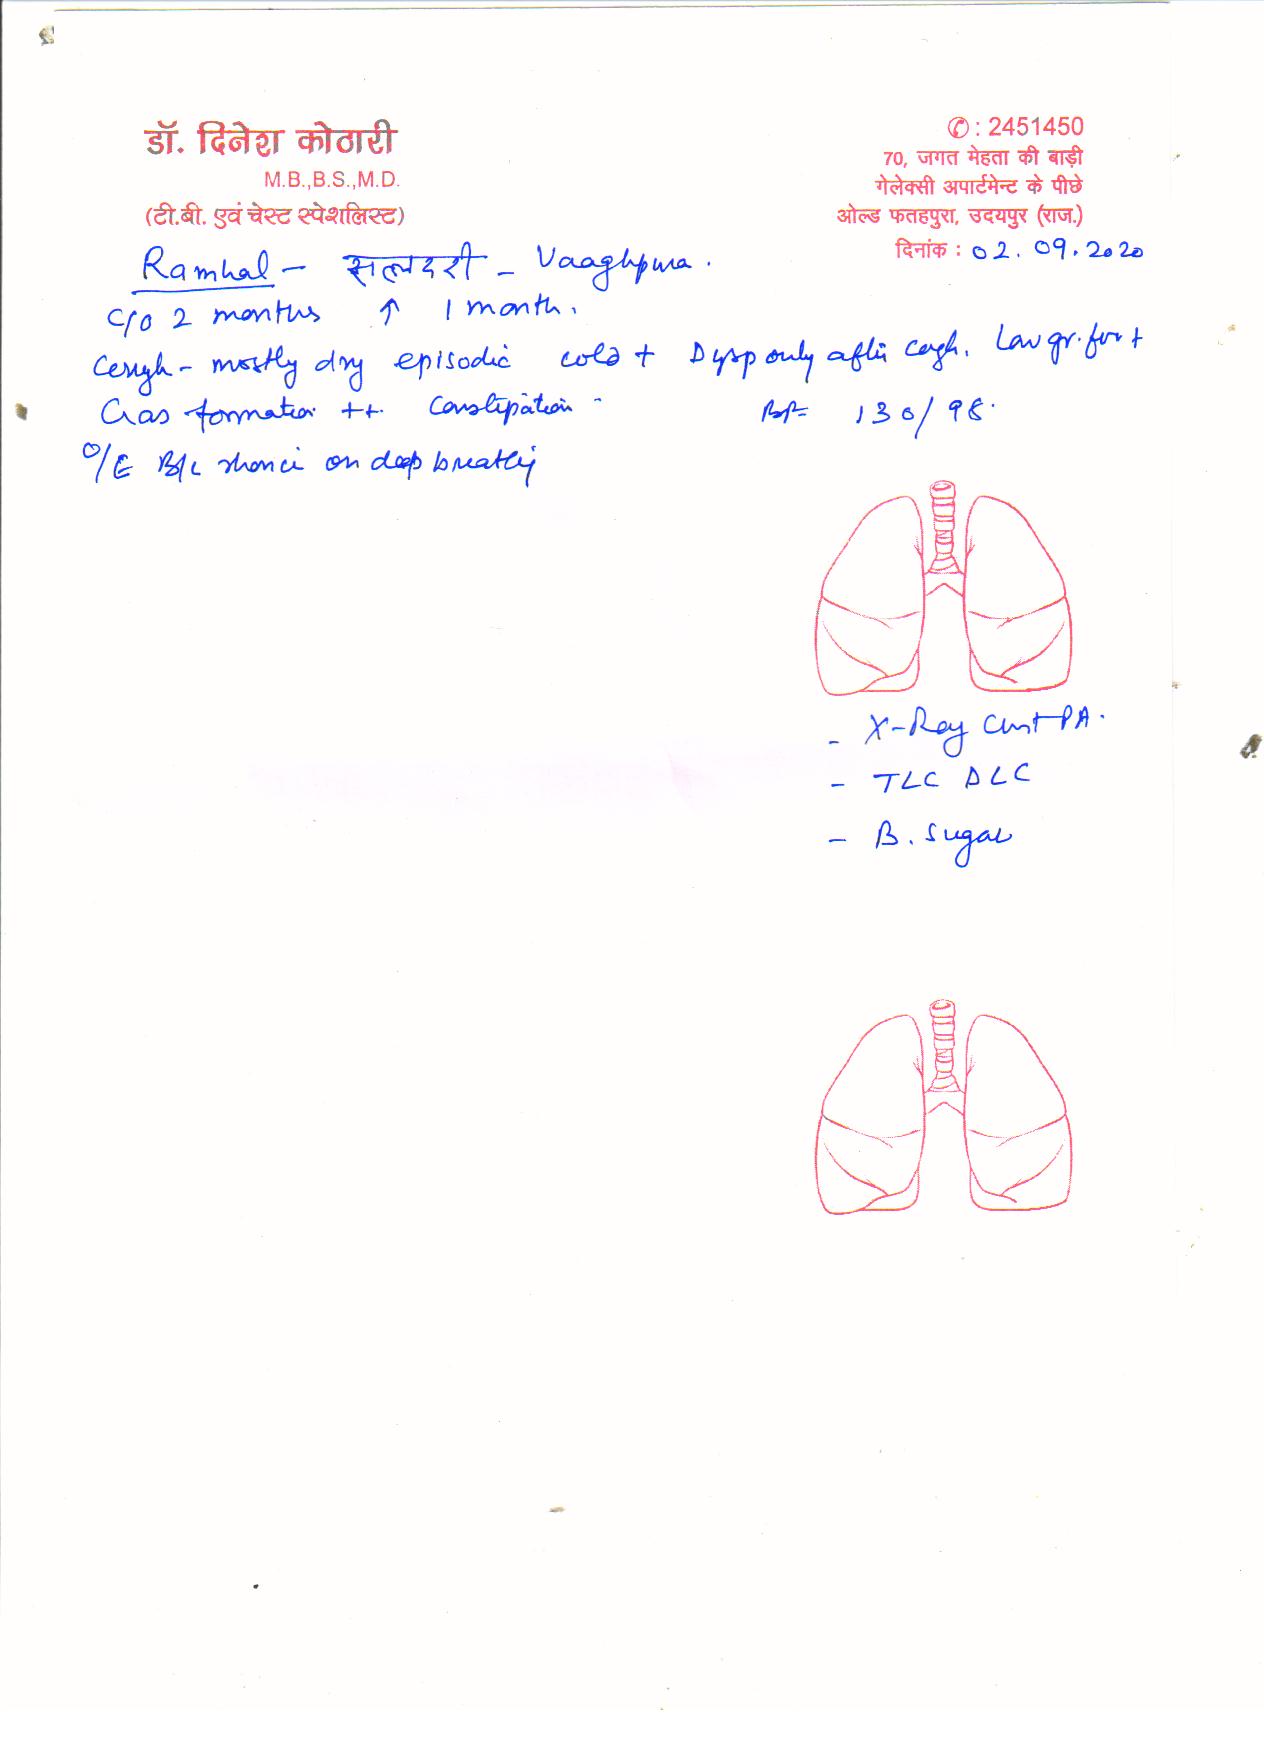 डॉ. दिनेश कोठारी
M.B.,B.S.,M.D.
(टी.बी. एवं चेस्ट स्पेशलिस्ट)
✆ : 2451450
70, जगत मेहता की बाड़ी
गेलेक्सी अपार्टमेन्ट के पीछे
ओल्ड फतहपुरा, उदयपुर (राज.)
दिनांक : 02.09.2020
- Vaaghpura.
C/O 2 months ↑ 1 month.
Cough - mostly dry episodic cold + Dysp only after cough. Low gr. +
Gas formation ++ Constipation - BP= 130/98.
O/E B/L rhonci on deep breathing
- X-Ray Chest PA.
- TLC DLC
- B. Sugar